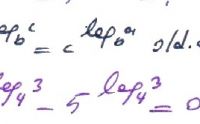 log_b^c = c^{log_b^a}
log_4^3 - 5^{log_4^3} = 0